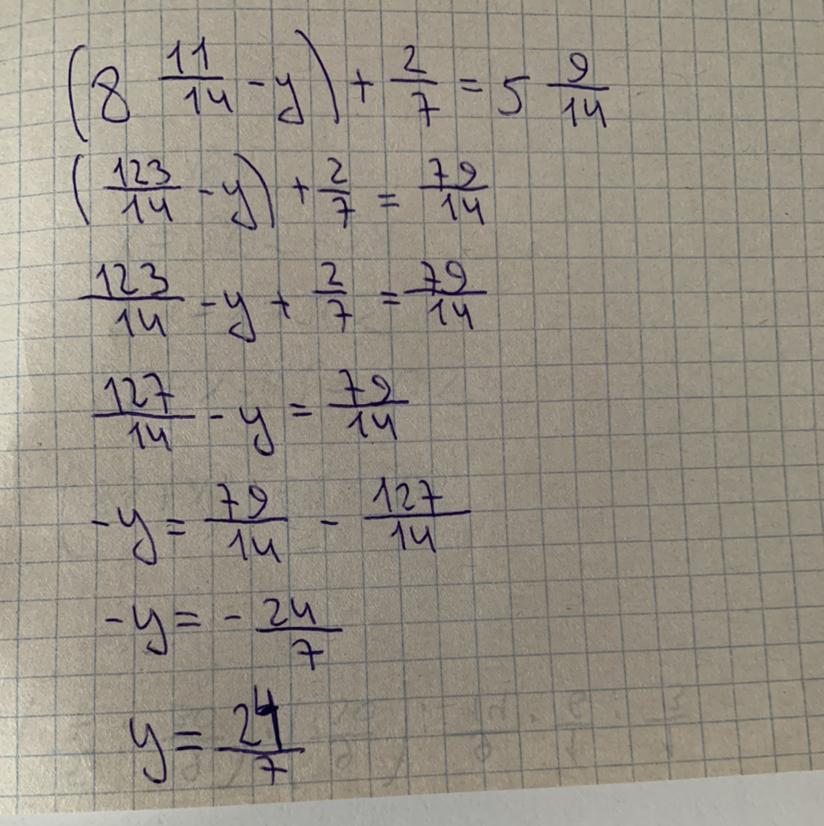 (8 11/14 - y) + 2/7 = 5 9/14
(123/14 - y) + 2/7 = 79/14
123/14 - y + 2/7 = 79/14
127/14 - y = 79/14
-y = 79/14 - 127/14
-y = - 24/7
y = 24/7